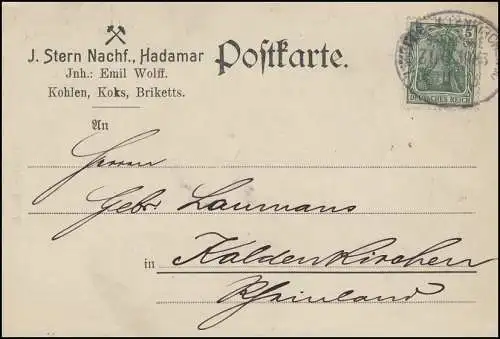 J. Stern Nachf., Hadamar
Jnh.: Emil Wolff.
Kohlen, Koks, Briketts.
Postkarte.
5
DEUTSCHES REICH
An
Herrn
Gebr. Laumans
in Kaldenkirchen
Rheinland